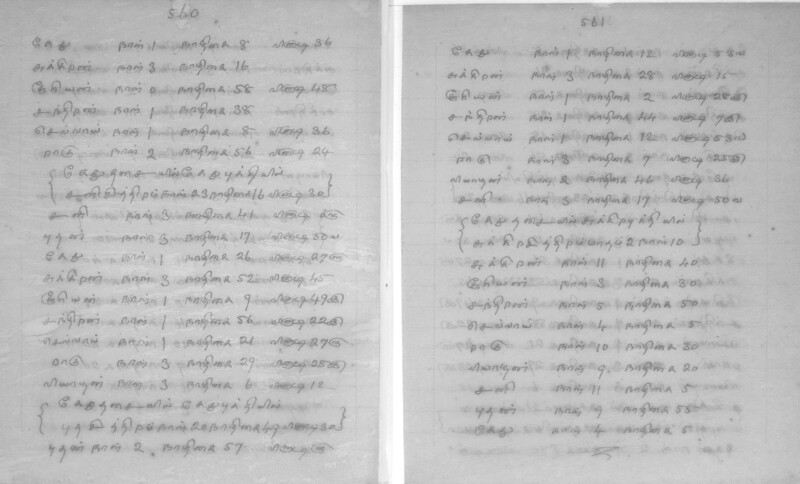 560
கேது நாள் 1 நாழிகை 8 வினாடி 36
சுக்கிரன் நாள் 3 நாழிகை 16
சூரியன் நாள் 0 நாழிகை 58 வினாடி 48
சந்திரன் நாள் 1 நாழிகை 38
செவ்வாய் நாள் 1 நாழிகை 8 வினாடி 36
ராகு நாள் 2 நாழிகை 56 வினாடி 24
கேதுதசையில் கேதுபுக்தியில்
சனி நாள் 23 நாழிகை 16 வினாடி 30
சனி நாள் 3 நாழிகை 41 வினாடி
புதன் நாள் 3 நாழிகை 17 வினாடி 50
கேது நாள் 1 நாழிகை 26 வினாடி 27
சுக்கிரன் நாள் 3 நாழிகை 52 வினாடி 45
சூரியன் நாள் 1 நாழிகை 9 வினாடி 49
சந்திரன் நாள் 1 நாழிகை 56 வினாடி 22
செவ்வாய் நாள் 1 நாழிகை 21 வினாடி 27
ராகு நாள் 3 நாழிகை 29 வினாடி 28
வியாழன் நாள் 3 நாழிகை 6 வினாடி 12
கேதுதசையில் கேதுபுக்தியில்
புத நாள் 20 நாழிகை 49 வினாடி 30
புதன் நாள் 2 நாழிகை 57 வினாடி
561
கேது நாள் 1 நாழிகை 12 வினாடி 53
சுக்கிரன் நாள் 3 நாழிகை 28 வினாடி 15
சூரியன் நாள் 1 நாழிகை 2 வினாடி 28
சந்திரன் நாள் 1 நாழிகை 44 வினாடி 7
செவ்வாய் நாள் 1 நாழிகை 12 வினாடி 53
ராகு நாள் 3 நாழிகை 7 வினாடி 25
வியாழன் நாள் 2 நாழிகை 46 வினாடி 36
சனி நாள் 3 நாழிகை 17 வினாடி 50
கேதுதசையில் சுக்கிரபுக்தியில்
சுக்கிர மாதம் 2 நாள் 10
சுக்கிரன் நாள் 11 நாழிகை 40
சூரியன் நாள் 3 நாழிகை 30
சந்திரன் நாள் 5 நாழிகை 50
செவ்வாய் நாள் 4 நாழிகை 5
ராகு நாள் 10 நாழிகை 30
வியாழன் நாள் 9 நாழிகை 20
சனி நாள் 11 நாழிகை 5
புதன் நாள் 9 நாழிகை 55
கேது நாள் 4 நாழிகை 5